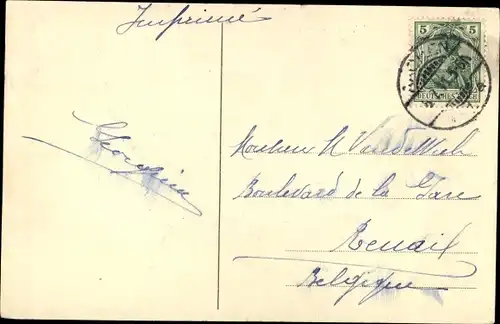 Imprimé
5 5
DEUTSCHES REICH
Georgine
Monsieur H. Vandewiele
Boulevard de la Gare
Renaix
Belgique